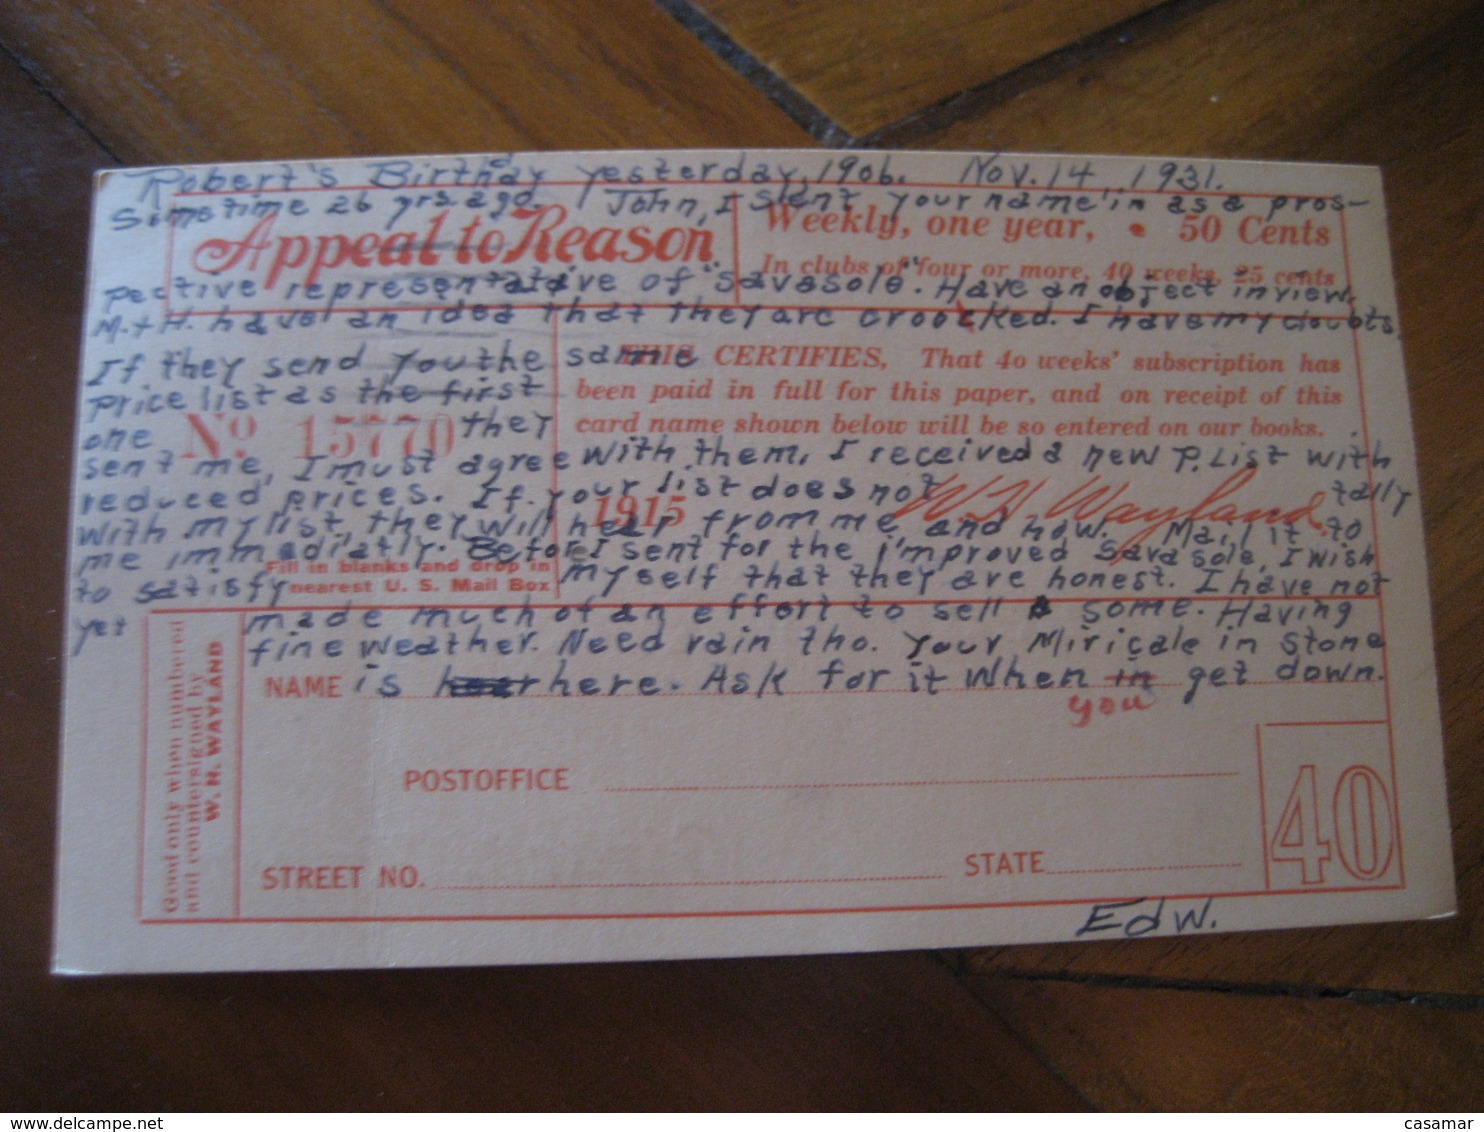 Robert's Birthday yesterday, 1906. Nov. 14, 1931.
Sometime 26 yrs. ago. John, I sent your name in as a pros-
Appeal to Reason
Weekly, one year, • 50 Cents
In clubs of four or more, 40 weeks, 25 cents
pective representative of "Savasole". Have an object in view.
M. + H. have an idea that they are crooked. I have my doubts
If they send you the same
THIS CERTIFIES, That 40 weeks' subscription has
price list as the first
been paid in full for this paper, and on receipt of this
one No 15770 they
card name shown below will be so entered on our books.
sent me, I must agree with them. I received a new P. List with
reduced prices. If your list does not tally
1915 W H Wayland
with my list, they will hear from me and how. Mail it to
me immadiatly. Before I sent for the improved Savasole, I wish
Fill in blanks and drop in
nearest U. S. Mail Box
to satisfy myself that they are honest. I have not
yet made much of an effort to sell some. Having
fine weather. Need rain tho. Your Miricale in Stone
NAME is here. Ask for it when in get down.
you
POSTOFFICE
STREET NO. STATE
40
Good only when numbered
and countersigned by
W. H. WAYLAND
Edw.
casamar
www.delcampe.net